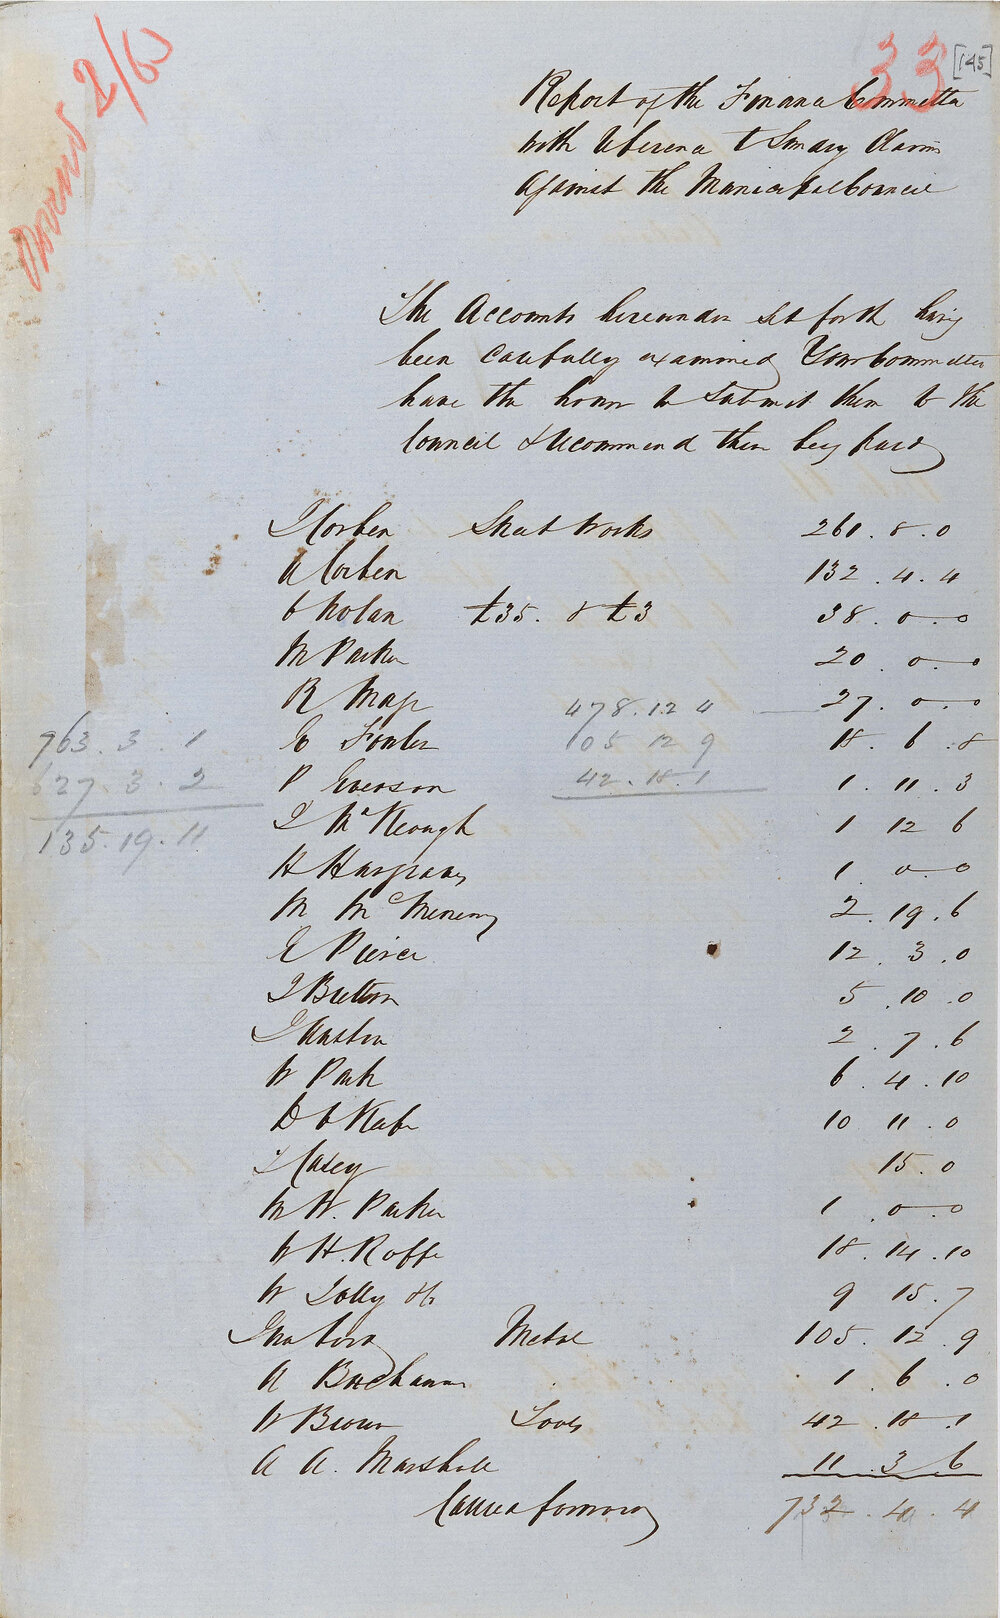 33 [145]
2/60
Report of the Finance Committee
with reference to Sundry Claims
Against the Municipal Council
The Accounts hereunder set forth having
been Carefully examined Your Committee
have the honor to Submit them to the
Council & Recommend their being paid
J Corben Street Works 260 . 8 . 0
A Corben 132 . 4 . 4
Nolan £35. & £3 38 . 0 . 0
M Parker 20 . 0 . 0
R Mape 27 . 0 . 0
478 . 12 4
E Fowler 18 . 6 . 8
105 12 9
763 . 3 . 1
P Everson 1 . 11 . 3
42 . 18 . 1
627 . 3 . 2
J McKeough 1 12 6
135 . 19 . 11
H Hargraves 1 . 0 . 0
M McMenemy 2 . 19 . 6
E Pierce 12 . 3 . 0
J Bretton 5 . 10 . 0
2 . 7 . 6
W Park 6 . 4 . 10
10 11 . 0
Casey 15 . 0
M W. Parker 1 . 0 . 0
W H. Roffe 18 . 14 . 10
W Jolly & Co 9 15 . 7
Metal 105 . 12 . 9
A Buchanan 1 . 6 . 0
W Brown 42 . 18 . 1
A A. Marshall 11 . 3 . 6
Carried forward 732 . 4 . 4